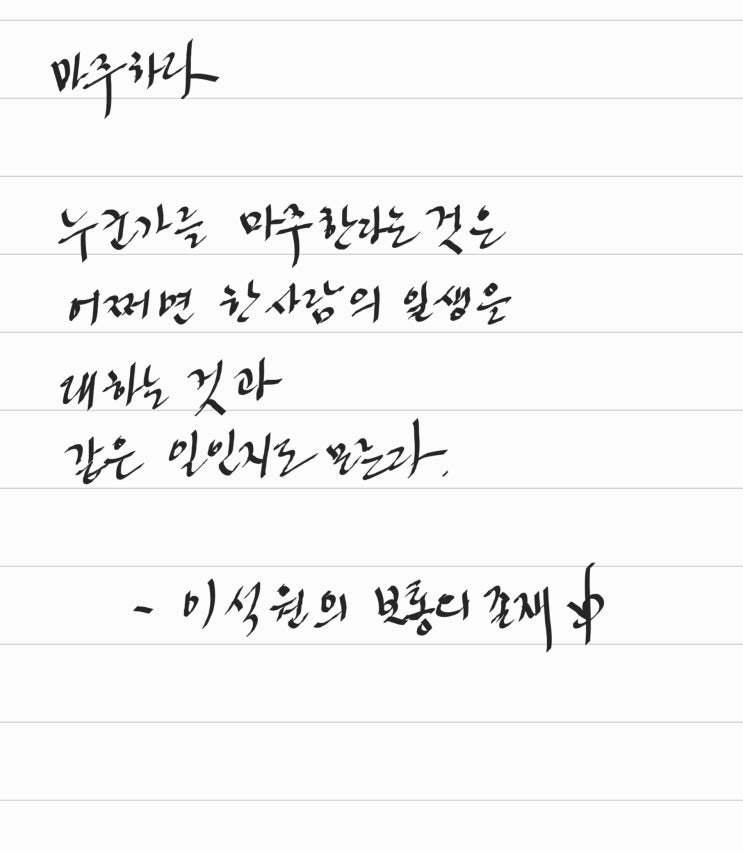 마주하라
누군가를 마주한다는 것은
어쩌면 한 사람의 일생을
대하는 것과
같은 일인지도 모른다.
- 이석원의 보통의 존재